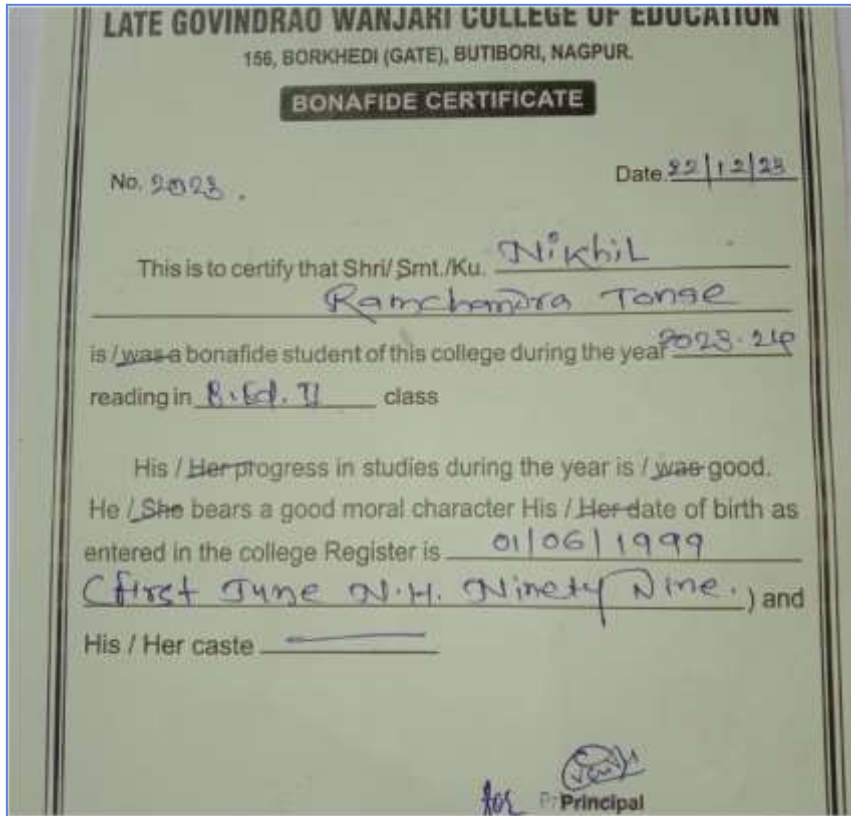 LATE GOVINDRAO WANJARI COLLEGE OF EDUCATION
156, BORKHEDI (GATE), BUTIBORI, NAGPUR.
BONAFIDE CERTIFICATE
No. 2023.
Date 22/12/23
This is to certify that Shri/ Smt./Ku. Nikhil
Ramchandra Tonge
is / was a bonafide student of this college during the year 2023-24
reading in B.Ed. II class
His / Her progress in studies during the year is / was good.
He / She bears a good moral character His / Her date of birth as
entered in the college Register is 01/06/1999
(first June N.H. Ninety Nine.) and
His / Her caste
for
Principal